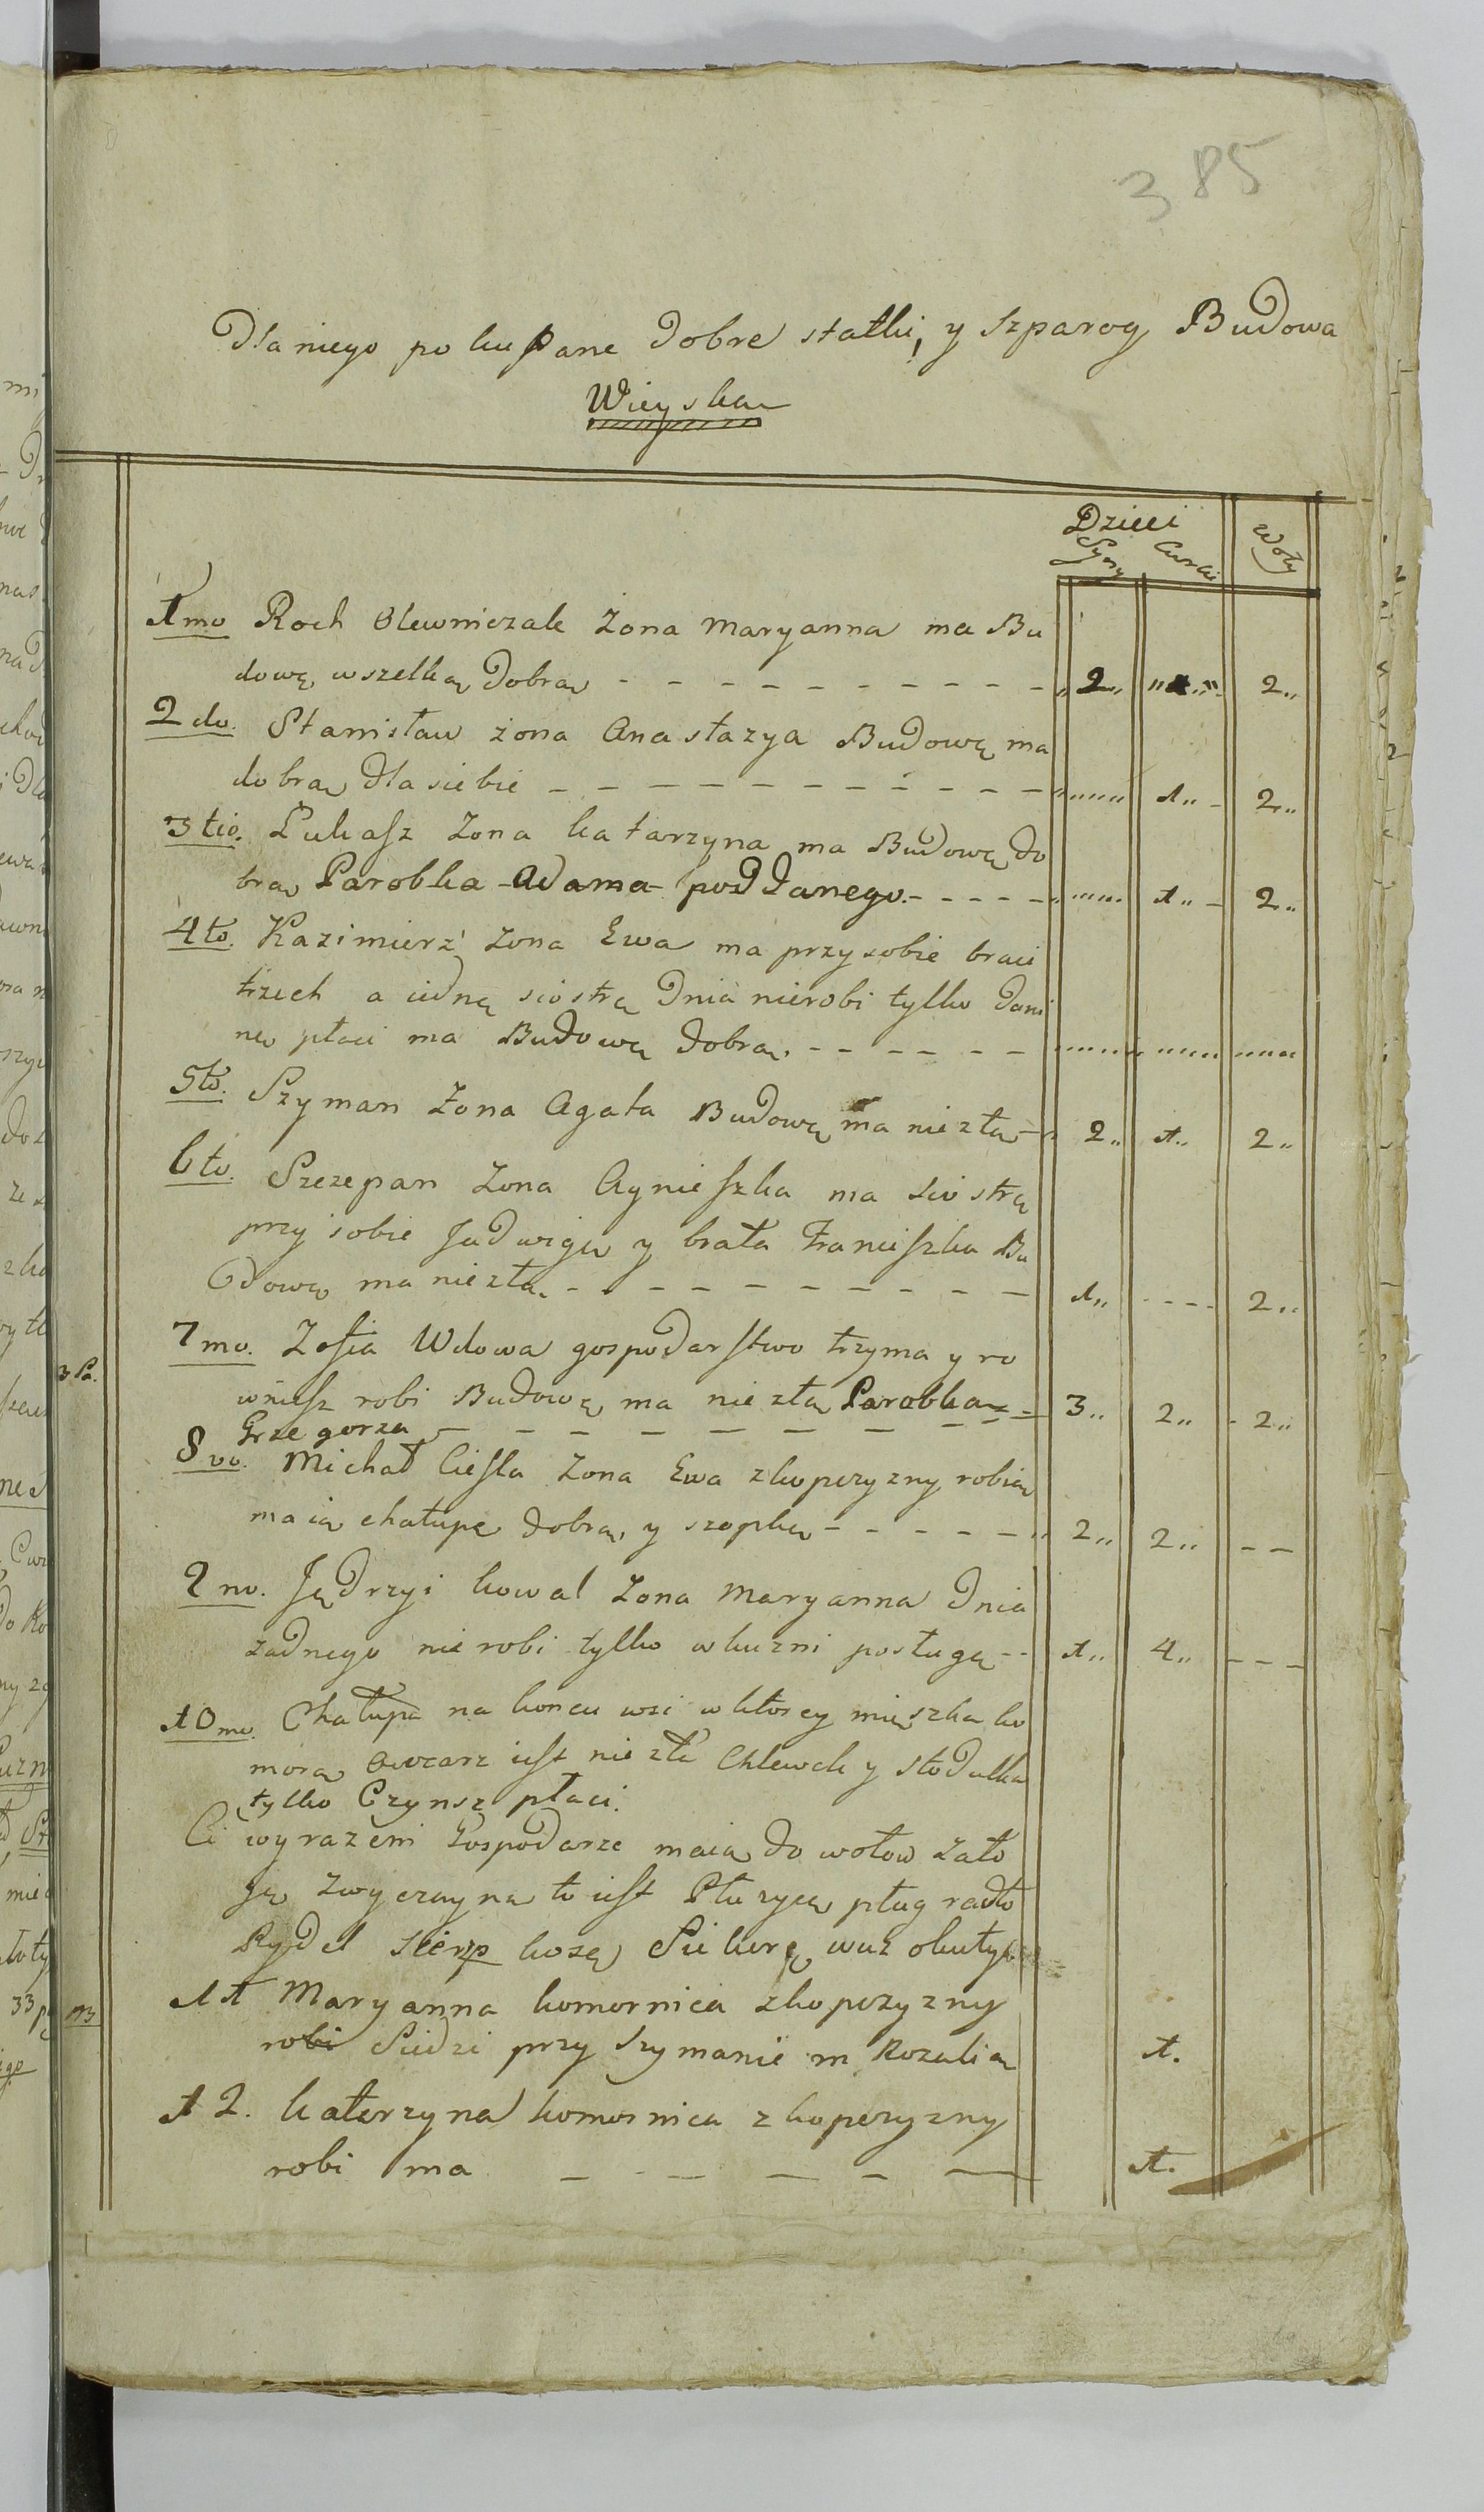 385
Dla niego pokupane dobre statki, y szparog Budowa
Wieyska
Dzieci
Syny Curki Woły
1mo Roch Olewniczak Zona Maryanna ma Bu
dowę wszelką dobrą - - - - - - - - - - 2,, 2,,
2do. Stanisław żona Anastazya Budowę ma
dobrą dla siebie - - - - - - - - - - 1,, - 2,,
3tio. Łukasz Zona Katarzyna ma Budowę do
brą Parobka Adama poddanego. - - - - - 1,, - 2,,
4to. Kazimierz Zona Ewa ma przy sobie braci
trzech a iedną siostrę Dnia nierobi tylko Dani
nę płaci ma Budowę dobrą. - - - - - -
5to. Szyman Zona Agata Budowę ma niezłą - 2,, 1,, 2,,
6to. Szczepan Zona Agnieszka ma siostrę
przy sobie Jadwigę y brata Franciszka Bu
dowę ma niezłą. - - - - - - - - - 1,, - - - - 2,,
3 Pa.
7mo. Zofia Wdowa gospodarstwo trzyma y ro
wniesz robi Budowę ma niezłą Parobka - - 3,, 2,, - 2,,
Grzegorza - - - - - - -
8vo. Michał Ciesla Zona Ewa zkopczyzny robią
maią chałupę dobrą, y szopkę - - - - - 2,, 2,, - -
9no. Jędrzyi kowal Zona Maryanna Dnia
żadnego nie robi tylko w kuzni posługę - - 1,, 4,, - - -
10mo. Chałupa na koncu wsi w ktorey mieszka ko
morą Owczarz iest niezłe Chlewek y stodułka
tylko Czynsz płaci.
Ci wyrazeni Gospodarze maią do wołow Zało
gę Zwyczayną to iest Płużycę pług radło
Rydel sierp kosę Siekierę wuz okuty
11 Maryanna komornica zkopczyzny
robi Siedzi przy Szymanie m. Rozalią 1.
12. Katerzyna komornica zkopczyzny
robi ma - - - - - 1.